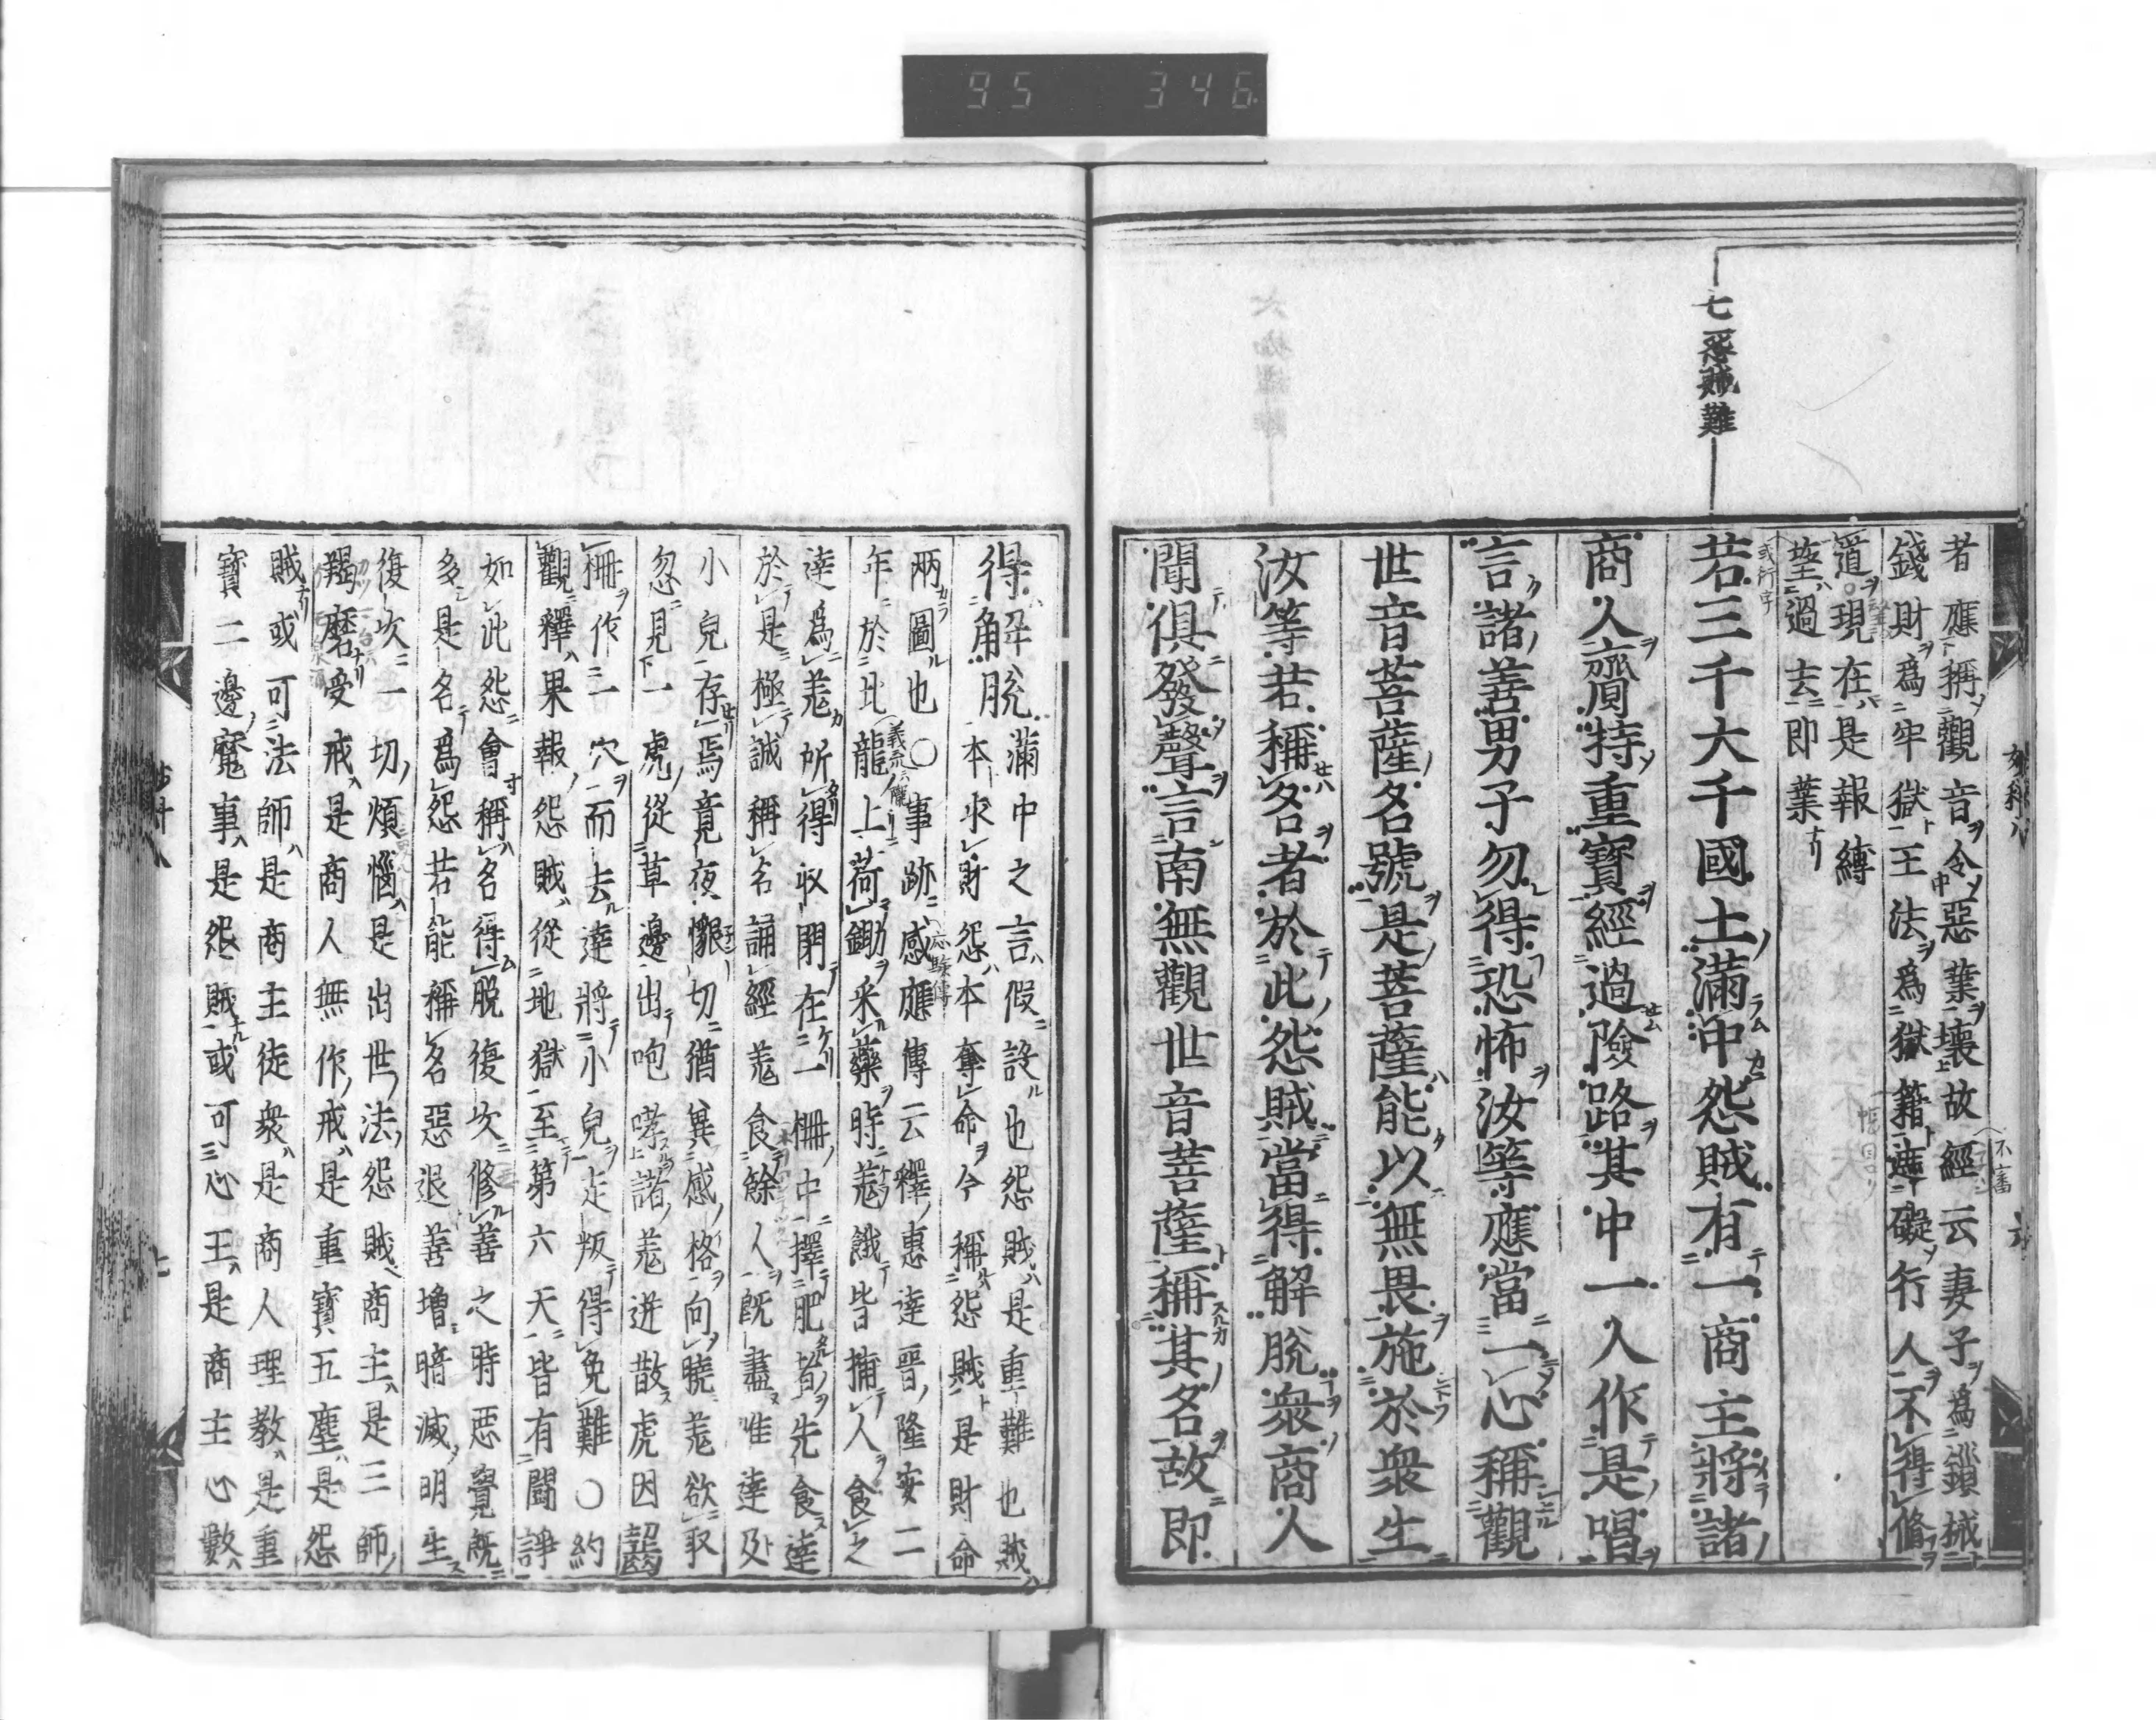 95 346
七怨賊難
者應稱觀音令惡業壞故經云妻子為鏁械
錢財為牢獄王法為獄籍遮礙行人不得脩
道現在是報縛
或行字
不審
過去即業
若三千大千國土滿中怨賊有一商主將諸
商人齎持重寶經過險路其中一人作是唱
言諸善男子勿得恐怖汝等應當一心稱觀
世音菩薩名號是菩薩能以無畏施於衆生
汝等若稱名者於此怨賊當得解脫衆商人
聞俱發聲言南無觀世音菩薩稱其名故即
得解脫滿中之言假設也怨賊是重難也賊
本求財怨本奪命今稱怨賊是財命
兩圖也○事跡感應傳云釋惠達晉隆安二
年於北隴上荷鋤采藥時羗餓皆捕人食之
達為羗所得収閉在一柵中擇肥者先食達
於是極誠稱名誦經羗食餘人既盡唯達及
小兒存焉竟夜懇切猶兾感格向曉羗欲取
忽見一虎從草邊出咆哮諸羗迸散虎因齧
柵作一穴而去達將小兒走叛得免難○約
觀釋果報怨賊從地獄至第六天皆有鬭諍
如此怨會稱名得脫復次修善之時惡覺既
多是名為怨若能稱名惡退善增暗滅明生
復次一切煩惱是出世法怨賊商主是三師
羯磨受戒是商人無作戒是重寶五塵是怨
賊或可法師是商主徒衆是商人理教是重
寶二邊魔事是怨賊或可心王是商主心數